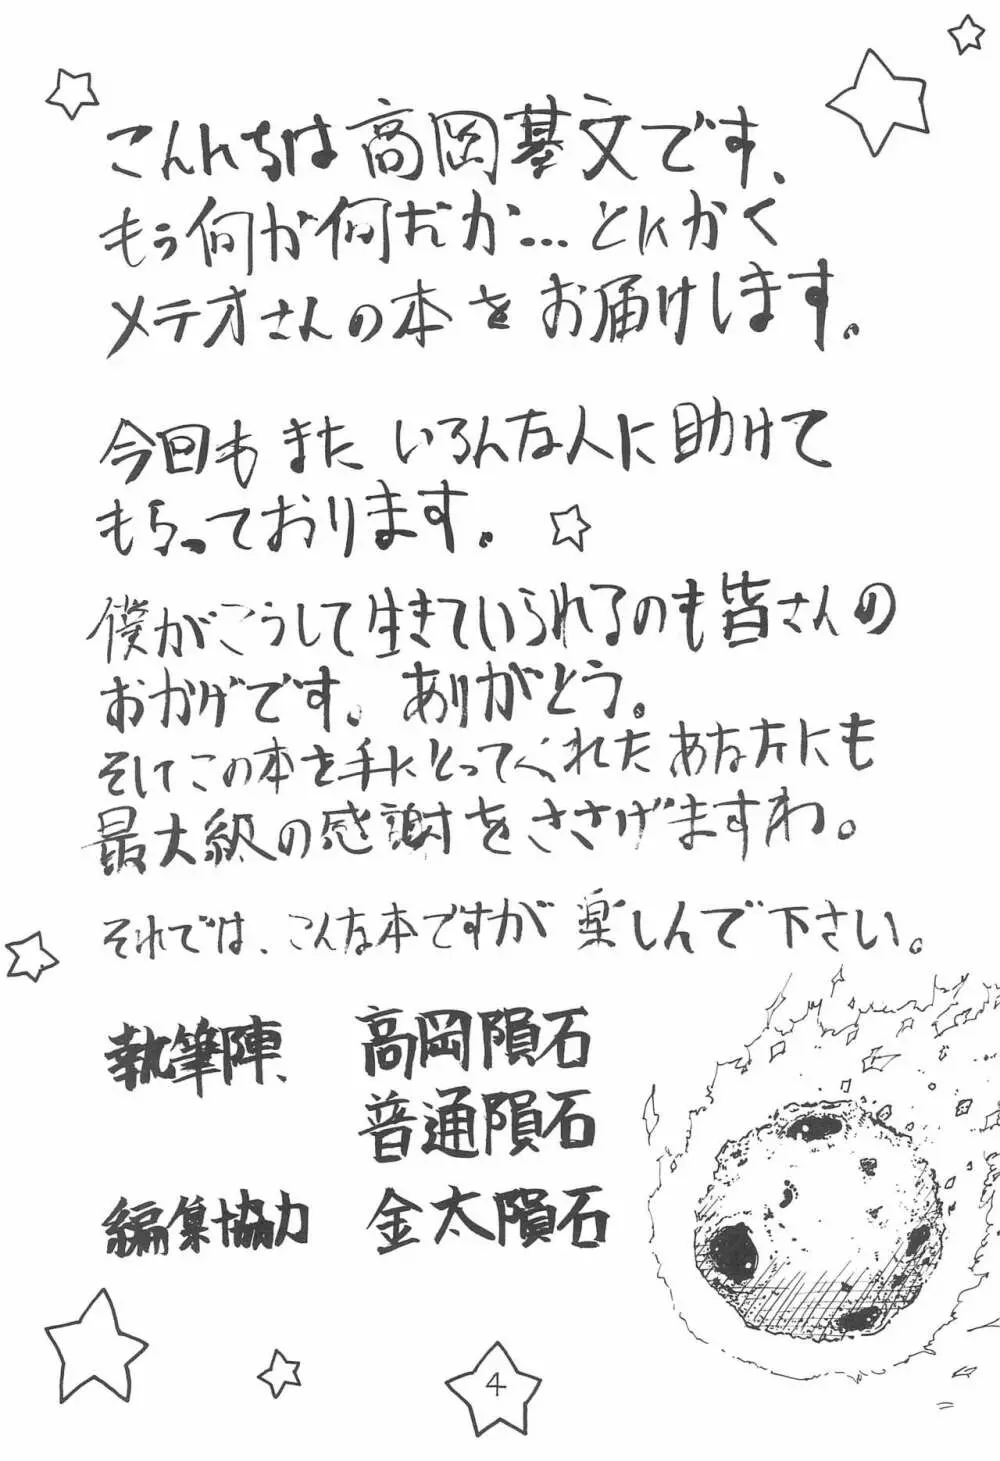 こんにちは高岡基文です、
もう何が何だか…とにかく
メテオさんの本をお届けします。
今回もまたいろんな人に助けて
もらっております。
僕がこうして生きていられるのも皆さんの
おかげです。ありがとう。
そしてこの本を手にとってくれたあなた方にも
最大級の感謝をささげますわ。
それでは、こんな本ですが楽しんで下さい。
執筆陣、 高岡隕石
普通隕石
編集協力 金太隕石
4